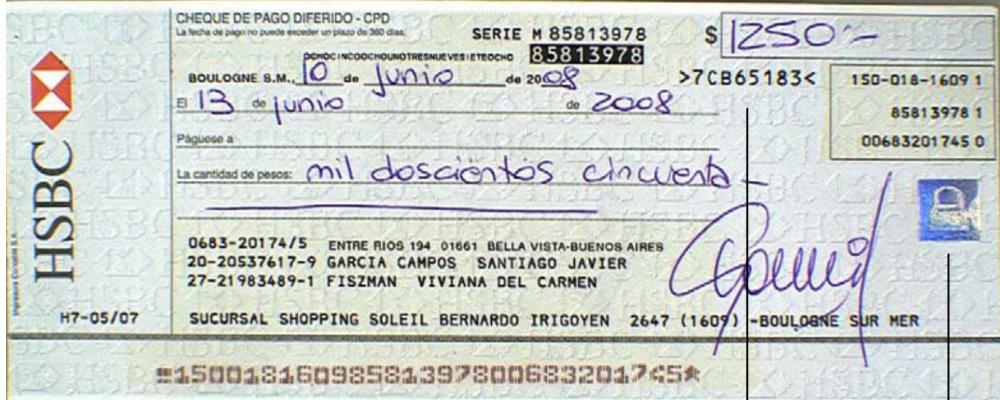 CHEQUE DE PAGO DIFERIDO - CPD
La fecha de pago no puede exceder un plazo de 360 días.
SERIE M 85813978
$ 1250.-
OCHOCINCOOCHOUNOTRESNUEVESIETEOCHO 85813978
BOULOGNE S.M., 10 de junio de 2008
>7CB65183<
150-018-1609 1
El 13 de junio de 2008
85813978 1
Páguese a
00683201745 0
La cantidad de pesos: mil doscientos cincuenta -
HSBC
0683-20174/5 ENTRE RIOS 194 01661 BELLA VISTA-BUENOS AIRES
20-20537617-9 GARCIA CAMPOS SANTIAGO JAVIER
27-21983489-1 FISZMAN VIVIANA DEL CARMEN
H7-05/07
SUCURSAL SHOPPING SOLEIL BERNARDO IRIGOYEN 2647 (1609) -BOULOGNE SUR MER
15001816098581397800683201745